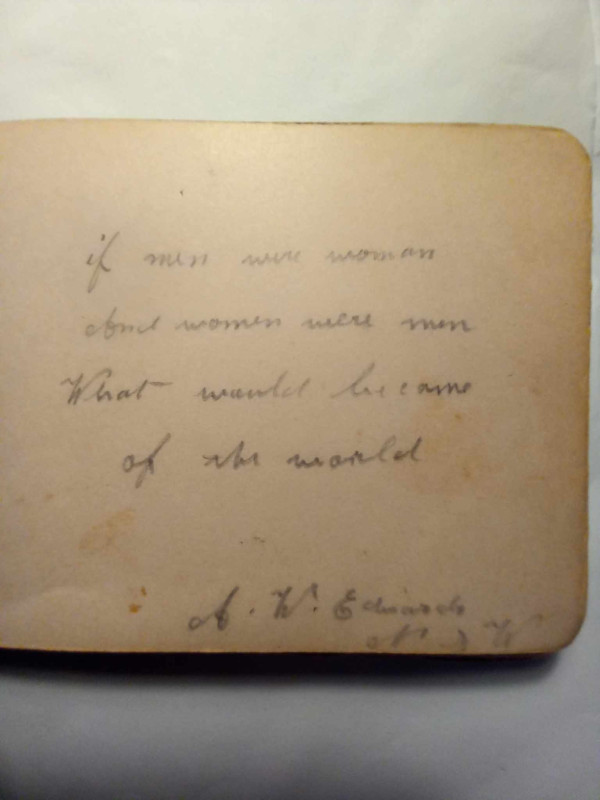 if men were woman
And women were men
What would become
of the world
A. W. Edwards